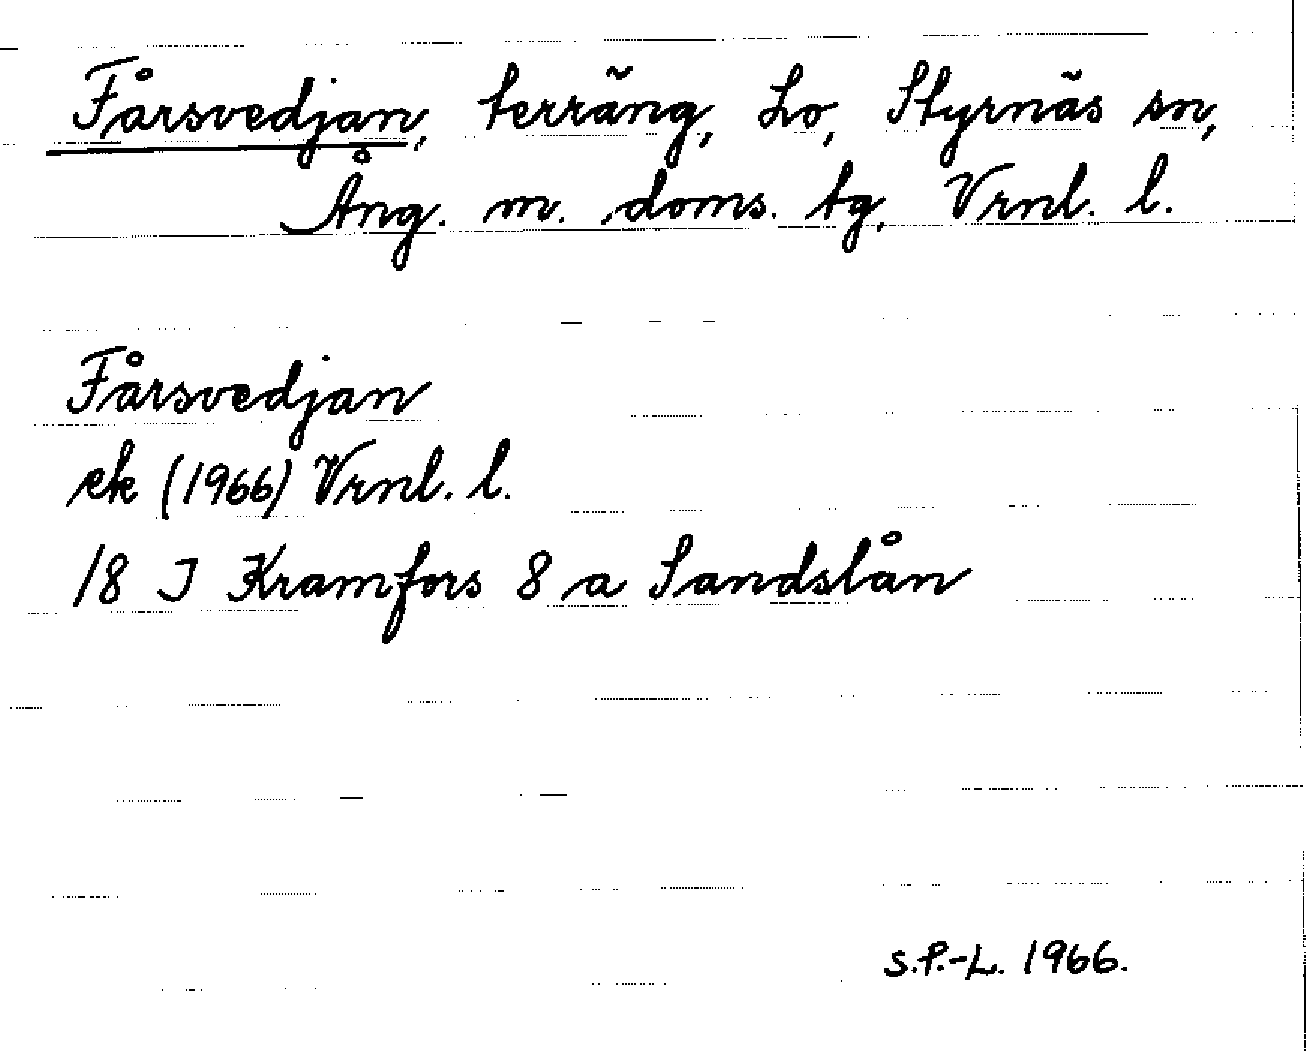 Fårsvedjan, terräng, Lo, Styrnäs sn,
Ång. m. doms. tg, Vrnl. l.
Fårsvedjan
ek (1966) Vrnl. l.
18 J Kramfors 8 a Sandslån
S.P.-L. 1966.